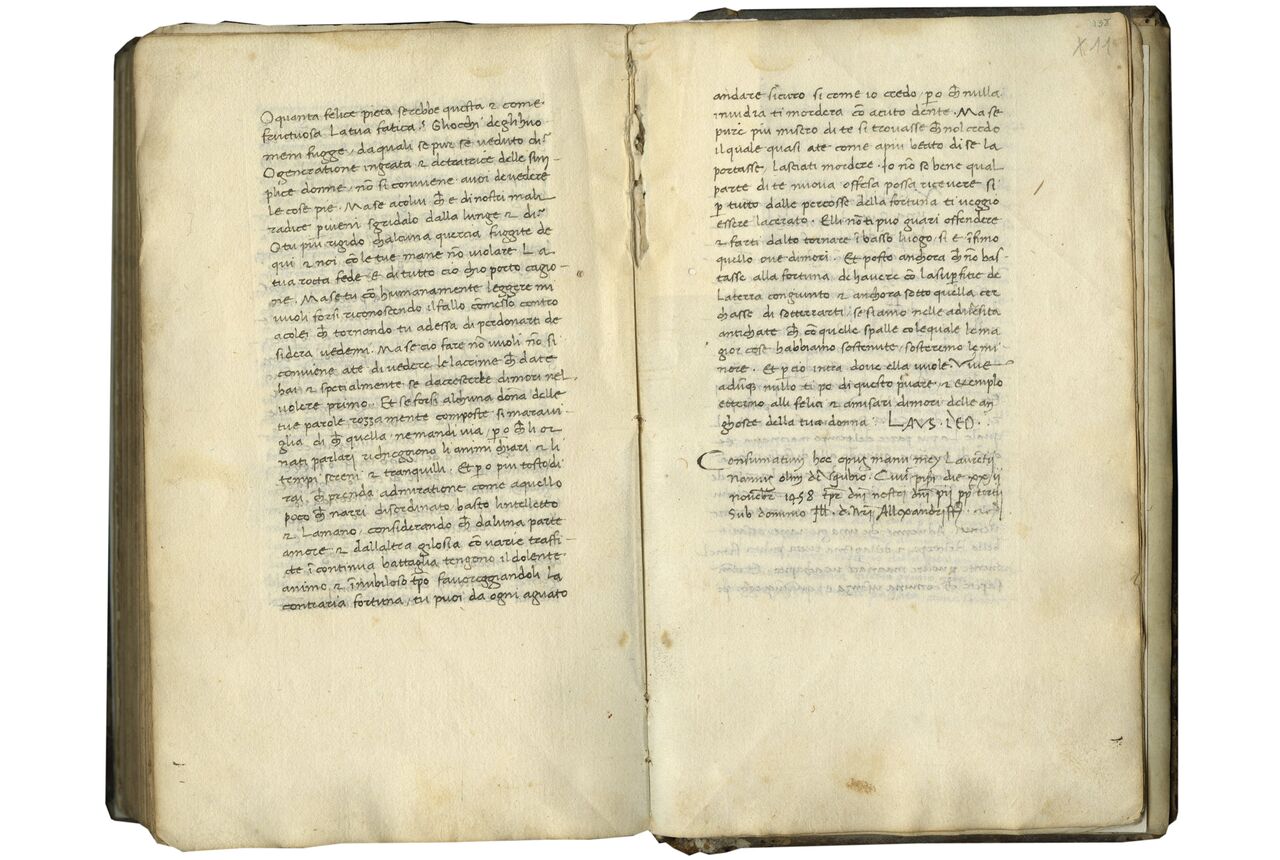 O quanta felice pieta serebbe questa & come
fructuosa La tua fatica? Gliocchi deglihuo
meni fugge, da quali se pur se veduto di
O generatione ingrata & detratrice delle sim
plice donne, nō si conviene a voi de vedere
le cose pie. Ma se a colui ch̄ e di nostri mali
radice puieni sgridalo dalla lunge & di
O tu piu rigido ch alcuna quercia fuggite de
qui & noi cō le tue mane nō violare La
tua rocta fede e di tutto cio ch io porto cagio
ne. Ma se tu cō humanamente leggere mi
vuoli forsi riconoscendo il fallo comesso contro
a colei ch̄ tornando tu adessa di perdonarti de
sidera vedemi. Ma se cio fare nō vuoli nō si
conviene a te di vedere le lacrime ch̄ date
hai & spetialmente se dacrescerle dimori nel
volere primo. Et se forsi alchuna dona delle
tue parole rozzamente composte si maravi
glia di ch̄ quella nemandi via, po ch̄ li or
nati parlari richieggono li animi chiari & li
tempi sereni & tranquilli. Et po piu tosto di
rai ch̄ prenda admiratione come a quello
poco ch̄ narri disordinato basto lintelletto
& La mano, considerando ch̄ da luna parte
amore & dallaltra gilosia cō varie traffi
cte ī continua battaglia tengono il dolente
animo & ī nubiloso tpo favoreggiandoli la
contraria fortuna, tu puoi da ogni aguato
andare sicuro si come io credo, po ch̄ nulla
invidia ti mordera cō acuto dēnte. Ma se
pure piu misero di te si trovasse ch̄ nol credo
il quale quasi a te come a piu beato di se la
portasse, lasciati mordere. Io nō so bene qual
parte di te nuova offesa possa ricevere si
p tutto dalle percosse della fortuna ti veggio
essere lacerato. Elli nō ti puo guari offendere
& farti dalto tornare ī basso luogo, si e īfimo
quello ove dimori. Et posto anchora ch̄ nō bas
tasse alla fortuna de havere cō la supfitie de
La terra congiunto & anchora sotto quella cer
chasse di sotterrarti, se siamo nelle adversita
antichate ch̄ cō quelle spalle cole quale le ma
gior cose habbiamo sostenute, sosteremo le mi
nore. Et p cio intra dove ella vuole. Vive
adūq nullo ti po di questo p̄vare, & exemplo
etterno alli felici & a misari dimori delle an
ghosce della tua donna. LAVS. DEO.
Consumatum hoc opus manu mey Laurētij
olim de 
novēbr 1458 tp̄r dn̄i nostri dn̄i pij pp
Sub dominio Ill. d. Alloxandri
138
X11